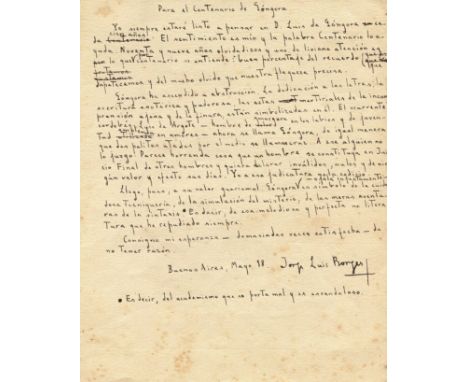 Para el Centenario de Góngora
Yo siempre estaré listo a pensar en D. Luis de Góngora cada
cien años. El sentimiento es mío y la palabra Centenario lo a-
yuda. Noventa y nueve años olvidadizos y uno de liviana atención es
lo que centenario se entiende: buen porcentaje del recuerdo que
apetecemos y del mucho olvido que nuestra flaqueza precisa.
Góngora ha ascendido a abstracción. La dedicación a las letras, la
escritura esotérica y pudorosa, las actas martiriales de la incom
prensión ajena y de la finura, están simbolizadas en él. El ocurrente
cordobés Luis de Argote — hombre de en los labios y de juven-
tud en amores — ahora se llama Góngora, de igual manera
que dos palitos atados por el medio se llaman cruz. A ese alguien no
lo juzgo. Parece horrenda cosa que un hombre se constituya en Jui-
cio Final de otros hombres y quiera declarar inválidos, malos y de nin
gún valor y efecto sus días. Yo a esa judicatura no la codicio.
Llego, pues, a su valor guarismal. Góngora es símbolo de la cuida-
dosa tecniquería, de la simulación del misterio, de las meras aventu-
ras de la sintaxis. Es decir, de esa melodiosa y perfecta no litera
tura que he repudiado siempre.
Consigno mi esperanza — demasiadas veces satisfecha — de
no tener razón.
Buenos Aires, Mayo 18 Jorge Luis Borges
• Es decir, del academismo que se porta mal y es escandaloso.